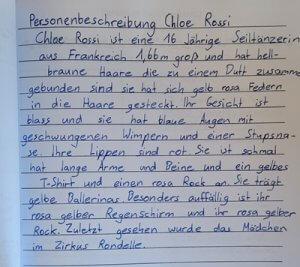 Personenbeschreibung Chloe Rossi
Chloe Rossi ist eine 16 Jährige Seiltänzerin
aus Frankreich 1,66m groß und hat hell-
braune Haare die zu einem Dutt zusamme
gebunden sind sie hat sich gelb rosa Federn
in die Haare gesteckt. Ihr Gesicht ist
blass und sie hat blaue Augen mit
geschwungenen Wimpern und einer Stupsna-
se Ihre Lippen sind rot. Sie ist schmal
hat lange Arme und Beine und ein gelbes
T-Shirt und einen rosa Rock an. Sie trägt
gelbe Ballerinas. Besonders auffällig ist ihr
rosa gelber Regenschirm und ihr rosa gelber
Rock. Zuletzt gesehen wurde das Mädchen
im Zirkus Rondelle.